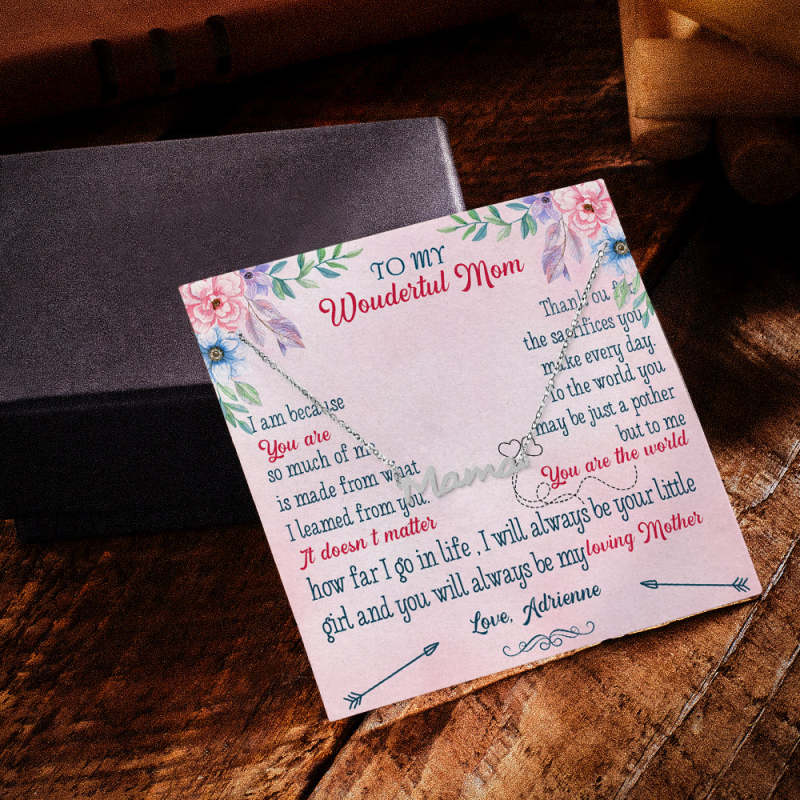 TO MY
Wouderful Mom
I am because
You are
so much of me
is made from what
I leamed from you.
It doesn t matter
Thank you for
the sacrifices you
make every day.
To the world you
may be just a pother
but to me
You are the world
Mama
how far I go in life , I will always be your little
girl and you will always be my loving Mother
Love, Adrienne